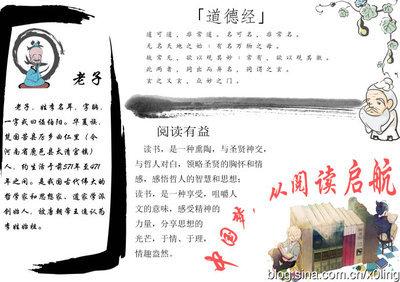 「道德经」
道可道,非常道。名可名,非常名。
无名天地之始;有名万物之母。
故常无,欲以观其妙;常有,欲以观其徼。
此两者,同出而异名,同谓之玄。
玄之又玄,众妙之门。
老子
老子,姓李名耳,字聃,
一字或曰谥伯阳。华夏族,
楚国苦县厉乡曲仁里(今
河南省鹿邑县太清宫镇)
人,约生活于前571年至471
年之间。是我国古代伟大的
哲学家和思想家、道家学派
创始人,被唐朝帝王追认为
李姓始祖。
阅读有益
读书,是一种熏陶,与圣贤神交,
与哲人对白,领略圣贤的胸怀和情
感,感悟哲人的智慧和思想;
读书,是一种享受,咀嚼人
文的意味,感受精神的
力量,分享思想的
光芒,于情、于理,
情趣盎然。
中国梦,
从阅读启航
blog.sina.com.cn/x0ling